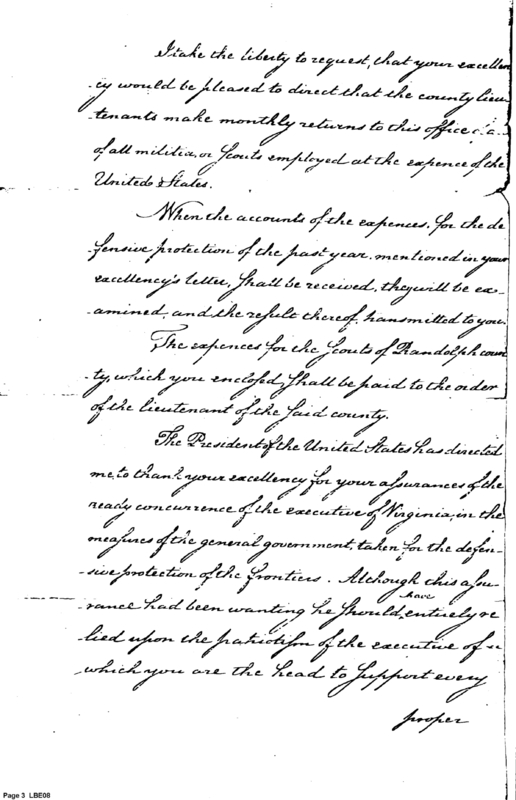 I take the liberty to request, that your excellen
-cy would be pleased to direct that the county lieu
-tenants make monthly returns to this office
of all militia, or Scouts employed at the expence of the
United States.
When the accounts of the expences, for the de
fensive protection of the past year, mentioned in your
excellency's letter, shall be received, they will be ex-
amined, and the result thereof, transmitted to you.
The expences for the Scouts of Randolph coun
-ty, which you enclosed, shall be paid to the order
of the lieutenant of the said county.
The President of the United States has directed
me, to thank your excellency for your assurances of the
ready concurrence of the executive of Virginia, in the
measures of the general government, taken for the defen-
-sive protection of the frontiers. Although this assu-
have
rance had been wanting, he should, entirely re
lied upon the patriotism of the executive of
which you are the head to support every
proper
Page 3 LBE08